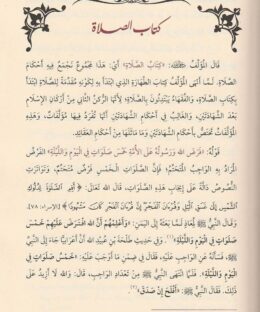 كتاب الصلاة
قال المؤلف ﷺ: «كتاب الصلاة» أي: هذا مجموع نجمع فيه أحكام
الصلاة. لما أنهى المؤلف كتاب الطهارة الذي ابتدأ به لكونه مقدمة للصلاة ابتدأ
بكتاب الصلاة، والفقهاء يبتدئون بالصلاة لأنها الركن الثاني من أركان الإسلام
بعد الشهادتين، والغالب في أحكام الشهادتين أنها تفرد فيها مؤلفات، وهذه
المؤلفات تختص بأحكام الشهادتين وما ماثلها من أحكام العقائد.
قوله: «فرض الله ورسوله على الأمة خمس صلوات في اليوم والليلة» الفرض
المراد به الواجب المتحتم، فإن الصلوات الخمس فرض من فروض الله، تواترت
النصوص دالة على إيجاب هذه الصلوات، قال الله تعالى: ﴿أقم الصلاة لدلوك
الشمس إلى غسق الليل وقرآن الفجر إن قرآن الفجر كان مشهودا﴾ [الإسراء: ٧٨]،
وقال النبي ﷺ لمعاذ لما بعثه إلى اليمن: «وأعلمهم أن الله افترض عليهم خمس
صلوات في اليوم والليلة»، وفي حديث طلحة بن عبيد الله أن أعرابيا جاء إلى النبي
ﷺ، فسأله عن الإسلام، وعن ما يجب عليه، فقال ﷺ: «خمس صلوات في
اليوم والليلة»، فلما انتهى النبي ﷺ من تعداد الواجب، قال: والله لا أزيد على
ذلك. فقال النبي ﷺ: «أفلح إن صدق»